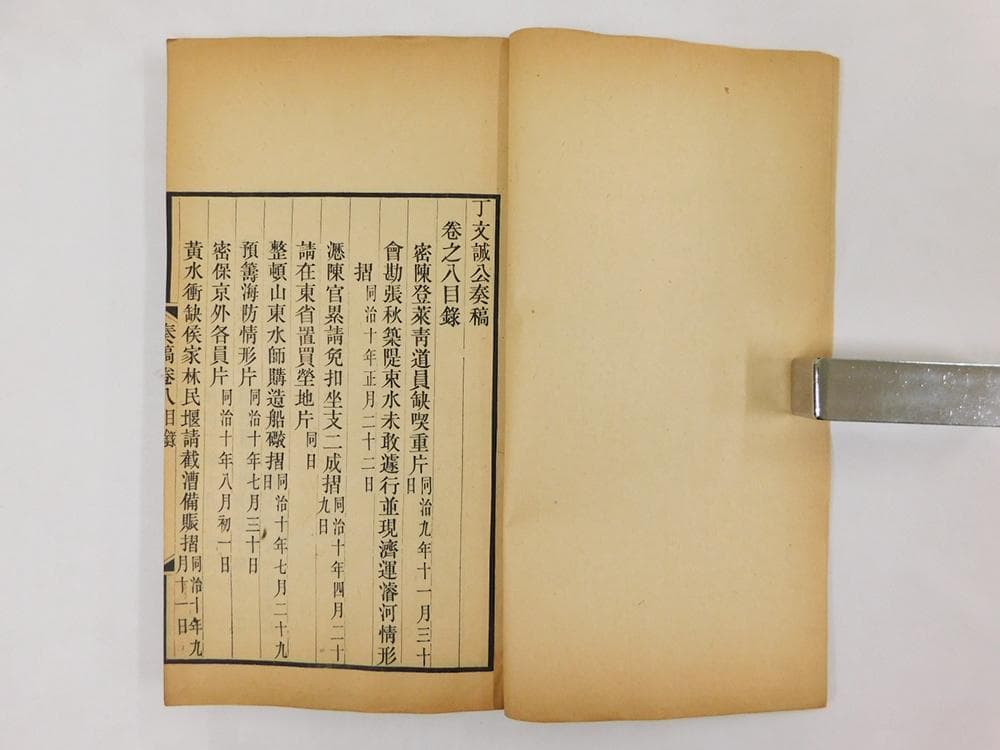 丁文誠公奏稿
卷之八目錄
密陳登萊青道員缺喫重片同治九年十一月三十日
會勘張秋築隄束水未敢遽行並現濟運濬河情形
摺同治十年正月二十二日
瀝陳官累請免扣坐支二成摺同治十年四月二十九日
請在東省置買塋地片同日
整頓山東水師購造船礮摺同治十年七月二十九日
預籌海防情形片同治十年七月三十日
密保京外各員片同治十年八月初一日
黃水衝缺侯家林民堰請截漕備賑摺同治十年九月十一日
奏稿卷八目錄